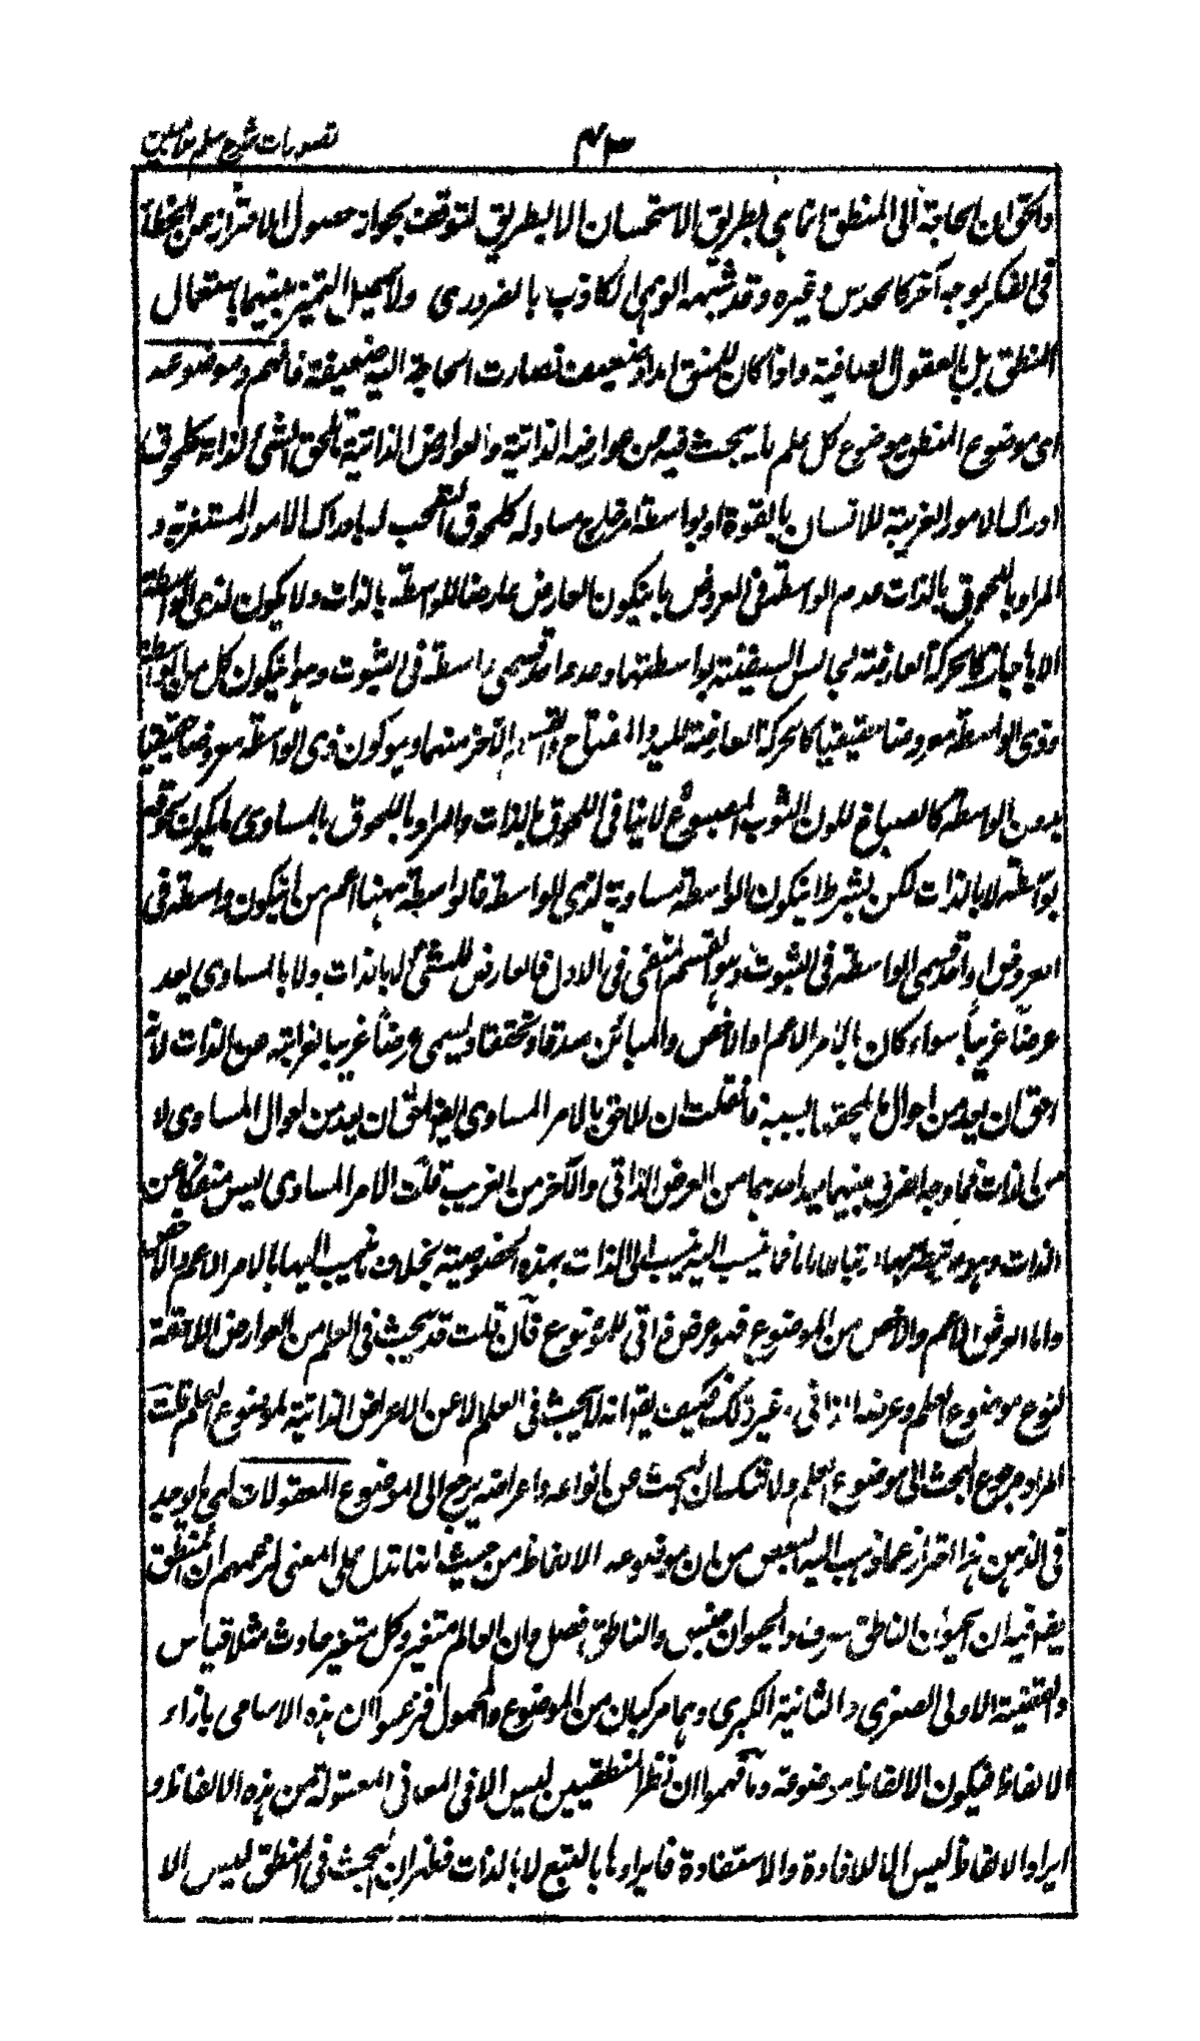 تصورات شرح سلم ملا مبين
٤٣
والحق ان الحاجة الى المنطق انما هى بطريق الاستحسان الا بطريق لتوقف بجواز حصول الاحتراز عن الخطاء
فى الفكر بوجه آخر كالحدس وغيره وقد يشتبه الوهمى الكاذب بالضرورى ولا سبيل التميز بينهما باستعمال
المنطق بل بالعقول الصافية واذا كان المنطق امدا ضعيفت فصارت الحاجة اليه ضعيفة فافهم وموضوعه
اى موضوع المنطق موضوع كل علم ما يبحث فيه من عوارضه الذاتية والعوارض الذاتية ما يلحق الشئ لذاته كلحوق
ادراك الامور الغريبة للانسان بالقوة او بواسطة امر خارج مساو له كلحوق التعجب له بادراك الامور المستغربة و
المراد باللحوق بالذات عدم الواسطة فى العروض بان يكون العارض عارضا للواسطة بالذات ولا يكون لذى الواسطة
الا بالمجاز كالحركة العارضة لجالس السفينة بواسطتها وعدم احد قسمى واسطة فى الثبوت وهو ان يكون كل من الواسطة
وذى الواسطة معروضا حقيقيا كالحركة العارضة لليد والمفتاح والقسم الآخر منهما وهو كون ذى الواسطة معروضا حقيقيا
بدون الواسطة كالصباغ للون الثوب المصبوغ لا ينافى اللحوق بالذات والمراد باللحوق بالمساوى ما يكون لحوقه
بواسطة لا بالذات لكن بشرط ان يكون الواسطة مساوية لذى الواسطة فالواسطة ههنا اعم من ان يكون واسطة فى
العروض او احد قسمى الواسطة فى الثبوت وهو القسم المنفى فى الاول فالعارض للشئ لا بالذات ولا بالمساوى يعد
عرضا غريبا سواء كان بالامر الاعم او الاخص والمباين صدقا وتحققا ويسمى عرضا غريبا لغرابته عن الذات لانه
احق ان يعد من احوال ما يلحقه بالسببه فان قلت ان اللاحق بالامر المساوى ايضا احق ان يعد من احوال المساوى لا
من الذات فما وجه الفرق بينهما بعد احدهما من العرض الذاتى والآخر من الغريب قلت الامر المساوى ليس منفكا عن
الذات وبينهما ارتباطا تاما فما ينسب اليه ينسب الى الذات بهذه الخصوصية بخلاف ما ينسب اليها بالامر الاعم والاخص
واما العرض الاعم والاخص من الموضوع فهو عرض ذاتى للموضوع فان قلت قد يبحث فى العلم من العوارض اللاحقة
لنوع موضوع العلم وعرضه الذاتى وغير ذلك فكيف يقال انه لا يبحث فى العلم الا عن الاعراض الذاتية لموضوع العلم قلت
المراد رجوع البحث الى موضوع العلم ولا شك ان البحث عن انواعه واعراضه يرجع الى الموضوع المعقولات اى ما يوجد
فى الذهن هذا احتراز عما ذهب اليه البعض من ان موضوعه الالفاظ من حيث انها تدل على المعنى لزعمهم ان المنطق
يقال فيه ان الحيوان الناطق معرف والحيوان جنس والناطق فصل وان العالم متغير وكل متغير حادث مثلا قياس
والقضية الاولى الصغرى والثانية الكبرى وهما مركبان من الموضوع والمحمول فزعموا ان هذه الاسامى بازاء
الالفاظ فيكون الالفاظ موضوعة وما فهموا ان نظر المنطقيين ليس الا فى المعانى المعقولة من هذه الالفاظ و
ايراد الالفاظ ليس الا للافادة والاستفادة فايرادها بالتبع لا بالذات فظهر ان البحث فى المنطق ليس الا